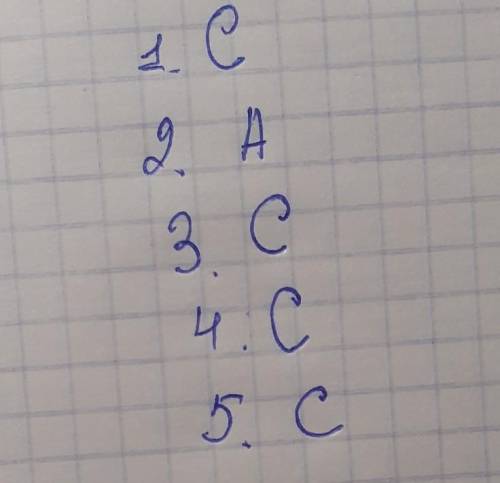 1. C
2. A
3. C
4. C
5. C